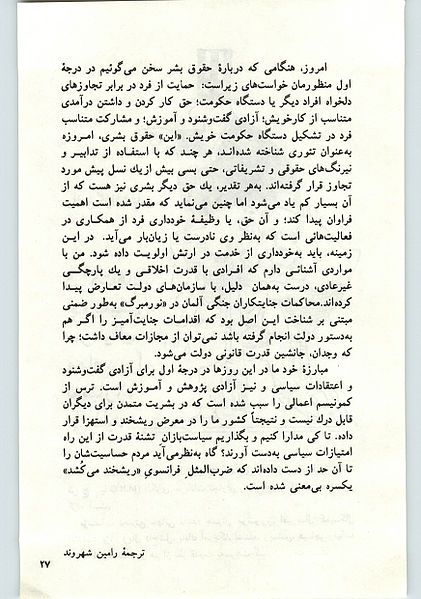 امروز، هنگامی که دربارهٔ حقوق بشر سخن می‌گوئیم در درجهٔ
اول منظورمان خواست‌های زیراست: حمایت از فرد در برابر تجاوزهای
دلخواه افراد دیگر یا دستگاه حکومت؛ حق کار کردن و داشتن درآمدی
متناسب از کارخویش؛ آزادی گفت‌وشنود و آموزش؛ و مشارکت متناسب
فرد در تشکیل دستگاه حکومت خویش. «این» حقوق بشری، امروزه
به‌عنوان تئوری شناخته شده‌اند، هر چند که با استفاده از تدابیر و
نیرنگ‌های حقوقی و تشریفاتی، حتی بسی بیش از یك نسل پیش مورد
تجاوز قرار گرفته‌اند. به‌هر تقدیر، یك حق دیگر بشری نیز هست که از
آن بسیار کم یاد می‌شود اما چنین می‌نماید که مقدر شده است اهمیت
فراوان پیدا کند؛ و آن حق، یا وظیفهٔ خودداری فرد از همکاری در
فعالیت‌هائی است که به‌نظر وی نادرست یا زیان‌بار می‌آید. در این
زمینه، باید به‌خودداری از خدمت در ارتش اولویت داده شود. من با
مواردی آشنائی دارم که افرادی با قدرت اخلاقی و یك پارچگی
غیرعادی، درست به‌همان دلیل، با سازمان‌های دولت تعارض پیدا
کرده‌اند.محاکمات جنایتکاران جنگی آلمان در «نورمبرگ» به‌طور ضمنی
مبتنی بر شناخت این اصل بود که اقدامات جنایت‌آمیز را اگر هم
به‌دستور دولت انجام گرفته باشد نمی‌توان از مجازات معاف داشت؛ چرا
که وجدان، جانشین قدرت قانونی دولت می‌شود.
مبارزهٔ خود ما در این روزها در درجهٔ اول برای آزادی گفت‌وشنود
و اعتقادات سیاسی و نیز آزادی پژوهش و آموزش است. ترس از
کمونیسم اعمالی را سبب شده است که در بشریت متمدن برای دیگران
قابل درك نیست و نتیجتاً کشور ما را در معرض ریشخند و استهزا قرار
داده. تا کی مدارا کنیم و بگذاریم سیاست‌بازان تشنهٔ قدرت از این راه
امتیازات سیاسی به‌دست آورند؟ گاه به‌نظرمی‌آید مردم حساسیت‌شان را
تا آن حد از دست داده‌اند که ضرب‌المثل فرانسوی «ریشخند می‌کُشد»
یکسره بی‌معنی شده است.
ترجمهٔ رامین شهروند
۲۷